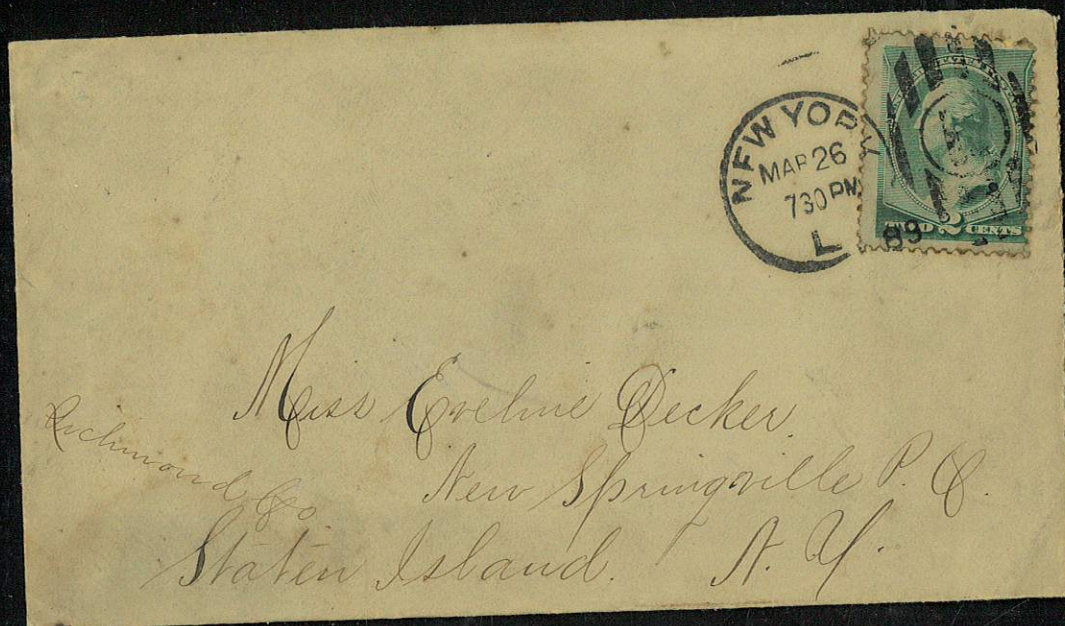 NEW YORK
MAR 26
730 PM
L
89
TWO 2 CENTS
Miss Eveline Decker
New Springville P. O.
Richmond Co.
Staten Island. N. Y.